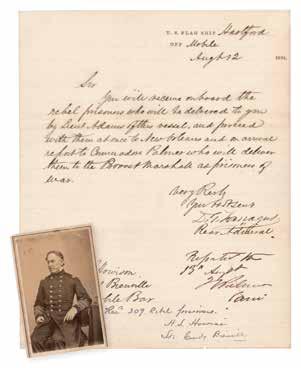 U. S. FLAG SHIP Hartford
OFF Mobile
Augt 12 1864.
Sir
You will receive onboard the
rebel prisoners who will be delivered to you
by Lieut Adams of this vessel, and proceed
with them at once to New Orleans and on arrival
report to Commodore Palmer who will deliver
them to the Provost Marshall as prisoners of
war.
Very Resp
Your Obt Servt
D. G. Farragut
Rear Admiral
Reported the
13th Augt
Howison
Bienville
Bar
309 Rebel prisoners.